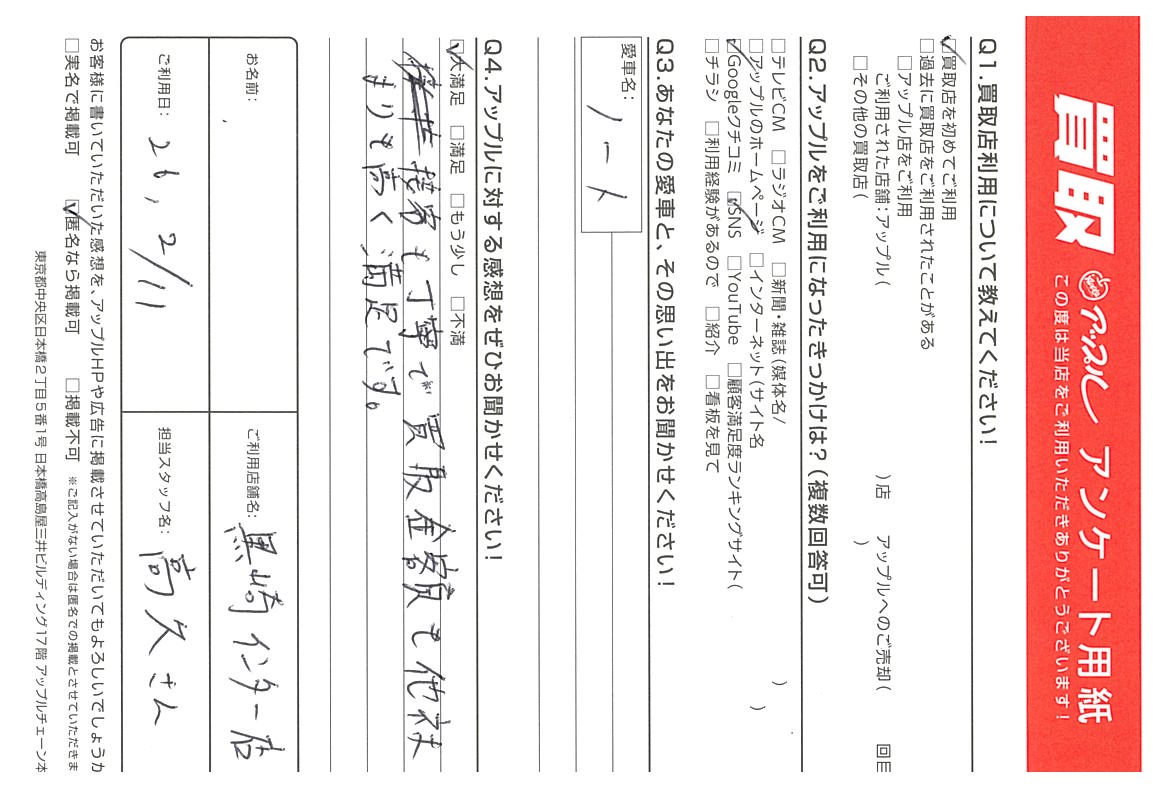 買取 アップル アンケート用紙
この度は当店をご利用いただきありがとうございます!
Q1.買取店利用について教えてください!
☑買取店を初めてご利用
□過去に買取店をご利用されたことがある
□アップル店をご利用
ご利用された店舗:アップル( )店 アップルへのご売却( 回目
□その他の買取店( )
Q2.アップルをご利用になったきっかけは?(複数回答可)
□テレビCM □ラジオCM □新聞・雑誌(媒体名/ )
□アップルのホームページ □インターネット(サイト名 )
☑Googleクチコミ ☑SNS □YouTube □顧客満足度ランキングサイト(
□チラシ □利用経験があるので □紹介 □看板を見て
Q3.あなたの愛車と、その思い出をお聞かせください!
愛車名: ノート
Q4.アップルに対する感想をぜひお聞かせください!
☑大満足 □満足 □もう少し □不満
接客も丁寧で買取金額も他社
よりも高く満足です。
お名前: ご利用店舗名: 黒崎インター店
ご利用日: 26, 2/11 担当スタッフ名: 高久さん
お客様に書いていただいた感想を、アップルHPや広告に掲載させていただいてもよろしいでしょうか
□実名で掲載可 ☑匿名なら掲載可 □掲載不可 ※ご記入がない場合は匿名での掲載とさせていただきま
東京都中央区日本橋2丁目5番1号 日本橋高島屋三井ビルディング17階 アップルチェーン本